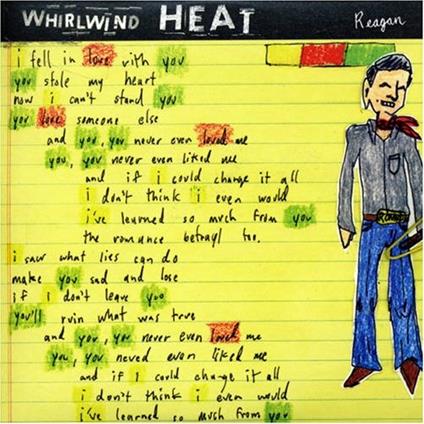 WHIRLWIND HEAT
Reagan
i fell in love with you
you stole my heart
now i can't stand you
you love someone else
and you, you never even loved me
you, you never even liked me
and if i could change it all
i don't think i even would
i've learned so much from you
the romance betrayl too.
i saw what lies can do
make you sad and lose
if i don't leave you
you'll ruin what was true
and you, you never even loved me
you, you neved even liked me
and if I could change it all
i don't think i even would
i've learned so much from you